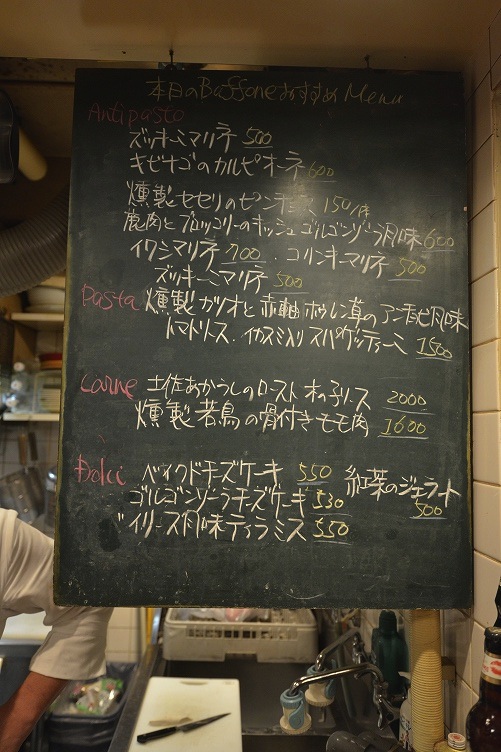 本日のBuffoneおすすめMenu
Antipasto
ズッキーニマリネ 500
キビナゴのカルピオーネ 600
燻製セセリのピンチョス 150/本
鹿肉とブロッコリーのキッシュ ゴルゴンゾーラ風味 600
イワシマリネ 700 . コリンキーマリネ 500
ズッキーニマリネ 500
Pasta 燻製カツオと赤軸ホウレン草のアンチョビ風味
トマトソース . イカスミ入りスパゲッティーニ 1500
Carne 土佐あかうしのロースト 木の子ソース 2000
燻製若鳥の骨付きモモ肉 1600
Dolci ベイクドチーズケーキ 550 紅茶のジェラート 500
ゴルゴンゾーラチーズケーキ 530
ベイリーズ風味ティラミス 550